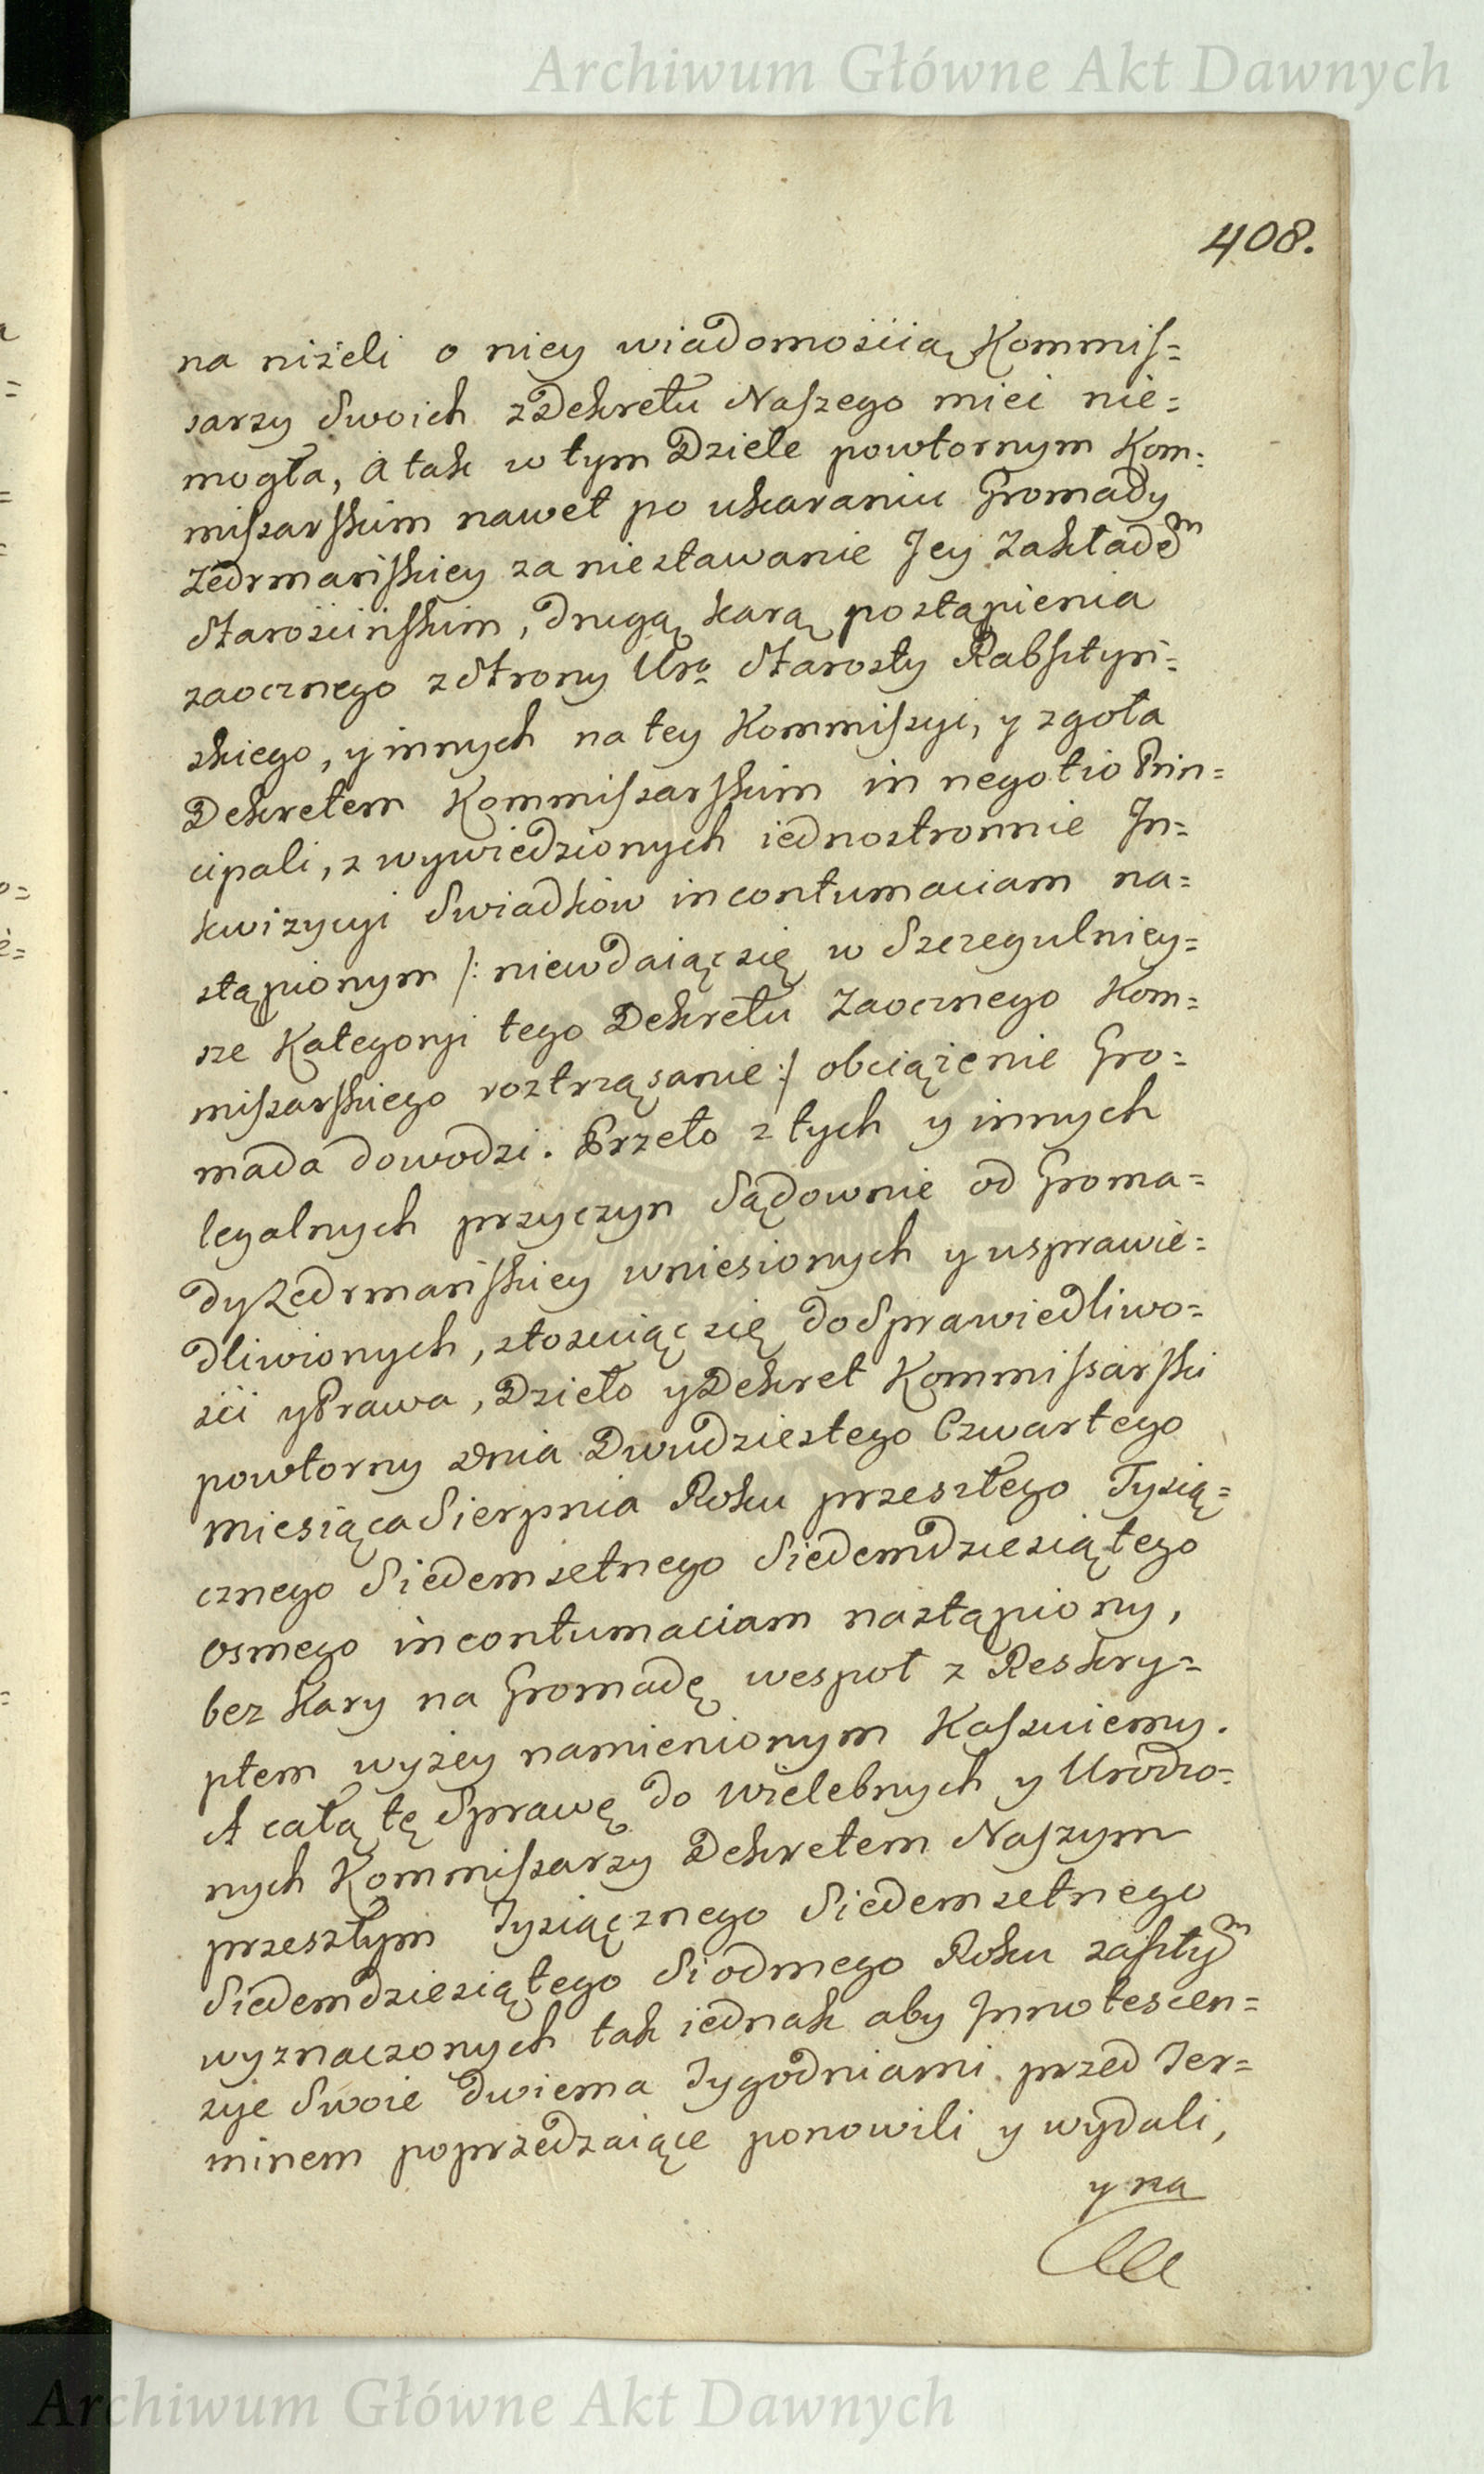 Archiwum Główne Akt Dawnych
408.
na niżeli o niey wiadomościią Kommis=
sarzy Swoich z Dekretu Naszego mieć nie=
mogła, A tak w tym Dziele powtornym Kom=
missarskim nawet po ukaraniu Gromady
Zedrmańskiey za niestawanie Jey Zakładem
Starościńskim, drugą karą postąpienia
zaocznego z Strony Uro Starosty Rabsztyń=
skiego, y innych na tey Kommissyi, y zgoła
Dekretem Kommissarskim in negotio Prin=
cipali, z wywiedzionych iednostronnie In=
kwizycyi Swiadków in contumaciam na=
stąpionym /: niewdaiąc się w Szczegulniey=
sze Kategoryi tego Dekretu Zaocznego Kom=
missarskiego roztrząsanie :/ obciążenie Gro=
mada dowodzi. Przeto z tych y innych
legalnych przyczyn Sądownie od Groma=
dy Zedrmańskiey wniesionych y usprawie=
dliwionych, stosuiąc się do Sprawiedliwo=
ści y Prawa, Dzieło y Dekret Kommissarski
powtorny Dnia Dwudziestego Czwartego
miesiąca Sierpnia Roku przeszłego Tysią=
cznego Siedemsetnego Siedemdziesiątego
osmego in contumaciam nastąpiony,
bez Kary na Gromadę wespoł z Reskry=
ptem wyżey namienionym Kassuiemy.
A całą tę Sprawę do Wielebnych y Urodzo=
nych Kommissarzy Dekretem Naszym
przeszłym Tysiącznego Siedemsetnego
Siedemdziesiątego Siodmego Roku zaszłym
wyznaczonych tak iednak aby Innotescen=
cye Swoie dwiema Tygodniami przed Ter=
minem poprzedzaiące ponowili y wydali,
y na
Archiwum Główne Akt Dawnych